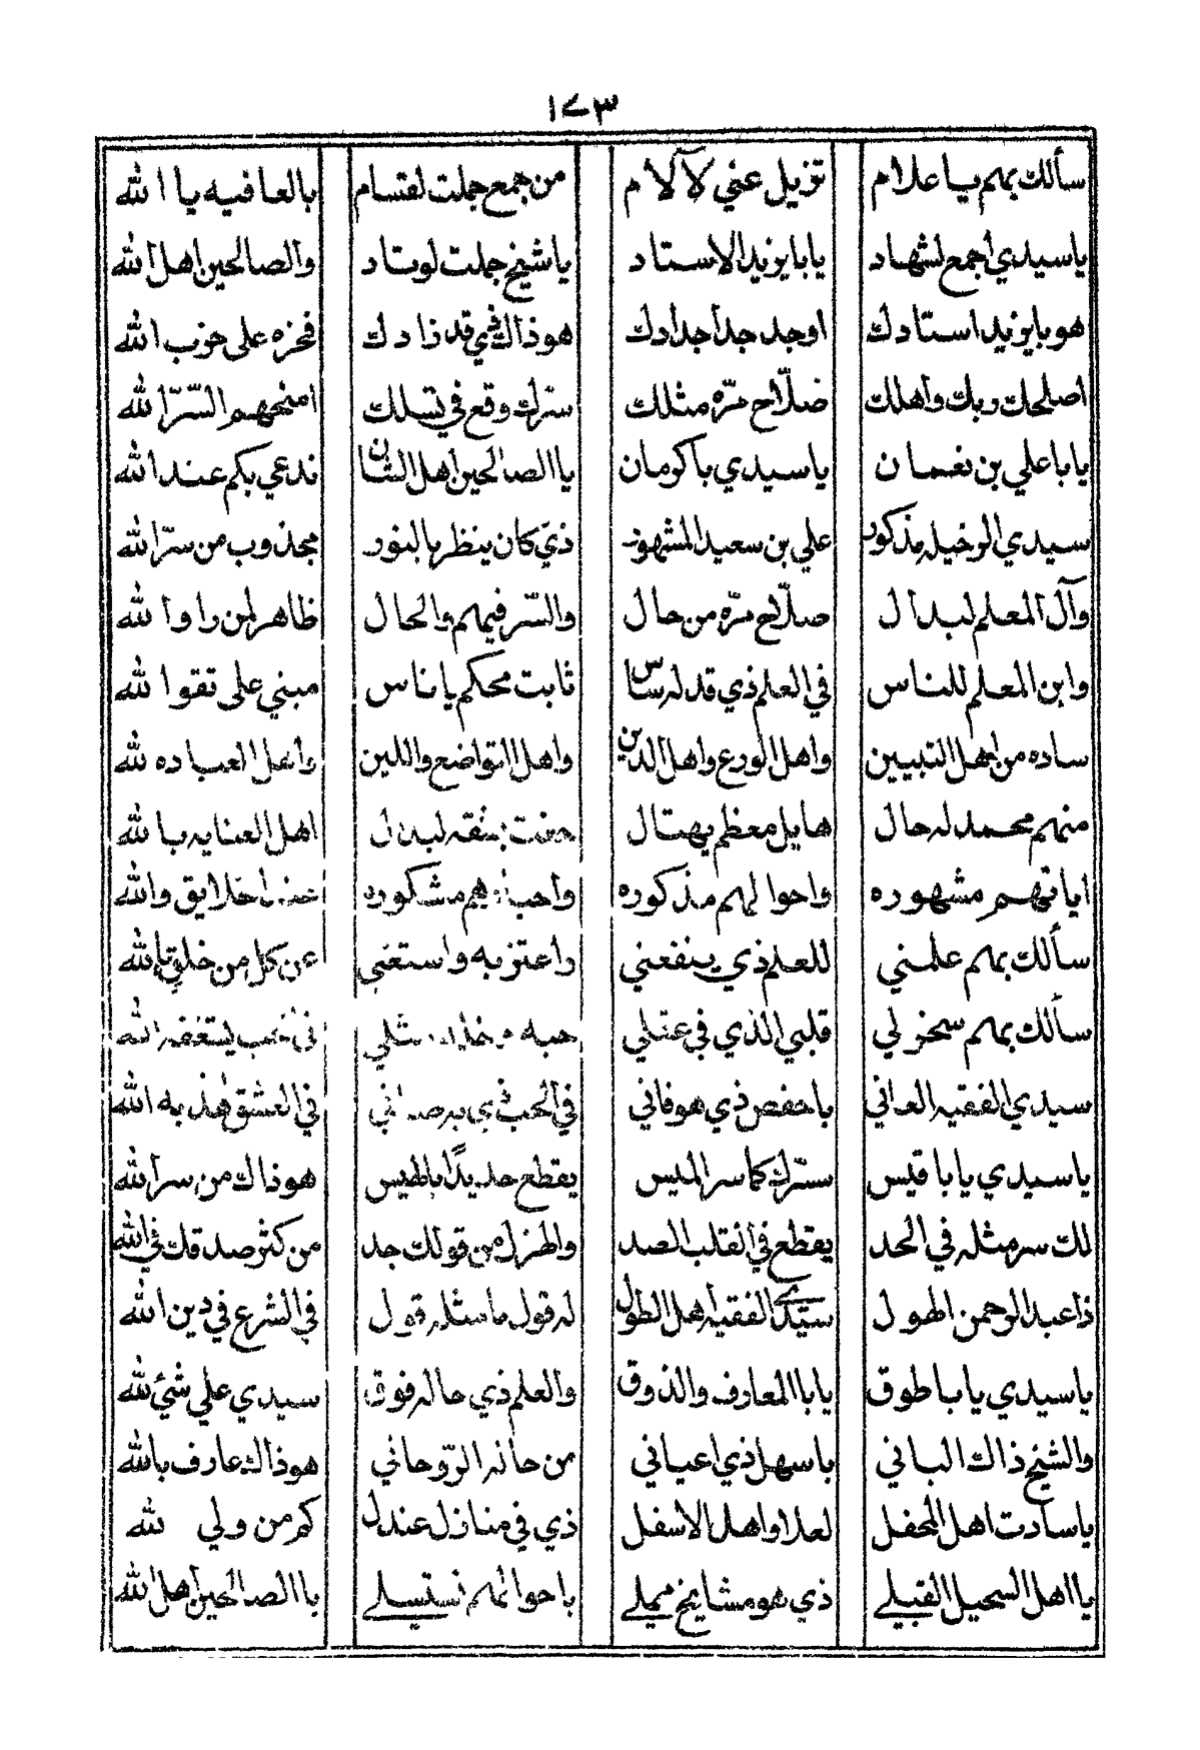 ١٧٣
سألك بهم يا علام تزيل عني لآلام من جمع جملت لقسام بالعافيه يا الله
ياسيدي أجمع لشهاد يابا يزيد الاستاد ياشيخ جملت لوتاد والصالحين اهل الله
هو بايزيد استادك اوجد جدا جدادك هو ذاك شي قد زادك فخزه على حزب الله
اصلحك ربك واهلك صلّاح مرّه مثلك سرّك وقع في نسلك امنحهم السّرّ الله
يابا علي بن نعمان ياسيدي باكومان يا الصالحين اهل الشان ندعي بكم عند الله
سيدي الوخيله مذكور علي بن سعيد المشهور ذي كان ينظر بالنور مجذوب من سرّ الله
وآل المعلم لبدال صلّاح مرّه من حال والسّر فيهم والحال ظاهر لمن راو الله
وابن المعلم للناس في العلم ذي قد له ساس ثابت محكم يا ناس مبني على تقوا لله
ساده من اهل التبيين واهل الورع واهل الدين واهل التواضع واللين واهل العباده لله
منهم محمد له حال هايل معظم يهتال بثقه لبدل اهل العنايه بالله
اياتهم مشهوره واحوالهم مذكوره مشكوره خلايق والله
سألك بهم علمني للعلم ذي ينفعني واعتز به واستغني عن كل من خلق الله
سألك بهم سخر لي قلبي الذي في عقلي حبه
سيدي الفقيه العراني باحفص ذي هو فاني في الحب في العشق هذبه الله
ياسيدي يابا قيس سرّك كما سر الميس يقطع حديدًا بالهيس هو ذاك من سر الله
لك سر مثله في الحد يقطع في القلب الصد والهزل من قولك جد من كثر صدقك في الله
ذا عبد الرحمن الهول سيّدي الفقيه اهل الطول له قول ما مثله قول في الشرع في دين الله
ياسيدي يابا طوق يابا المعارف والذوق والعلم ذي حاله فوق سيدي علي شئ لله
والشيخ ذاك الباني باسهل ذي اعياني من حاله الرّوحاني هو ذاك عارف بالله
ياسادت اهل المحفل لعلا واهل الاسفل ذي في منازل عندل كم من ولي لله
يا اهل السحيل القبلي ذي هو مشايخ مملي باحوالهم نستسلي يا الصالحين اهل الله